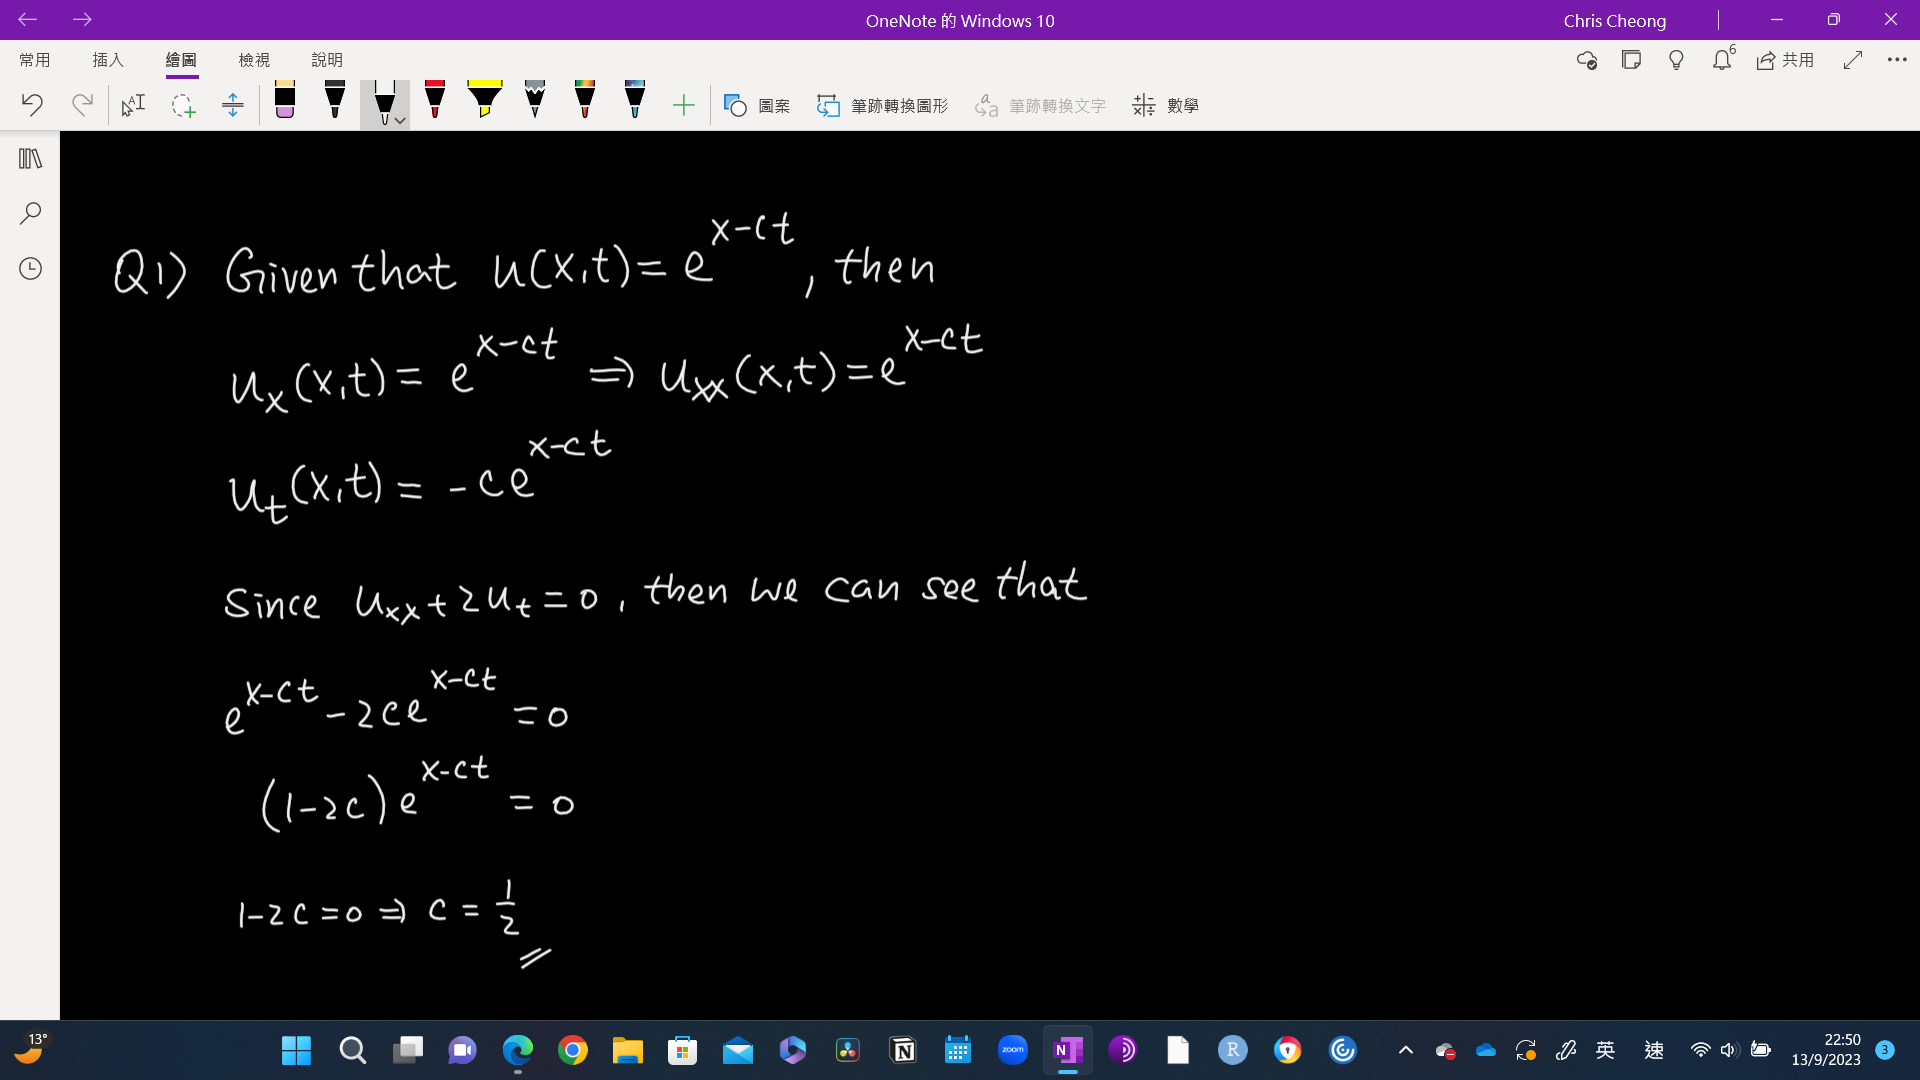 OneNote 的 Windows 10
Chris Cheong
常用 插入 繪圖 檢視 說明
6
共用
圖案 筆跡轉換圖形 筆跡轉換文字 數學
Q1) Given that u(x,t) = e^{x-ct}, then
u_x(x,t) = e^{x-ct} ⇒ u_{xx}(x,t) = e^{x-ct}
u_t(x,t) = -ce^{x-ct}
Since u_{xx} + 2u_t = 0, then we can see that
e^{x-ct} - 2ce^{x-ct} = 0
(1-2c)e^{x-ct} = 0
1-2c = 0 ⇒ c = 1/2
13°
zoom
N
R
英 速
22:50
13/9/2023
3